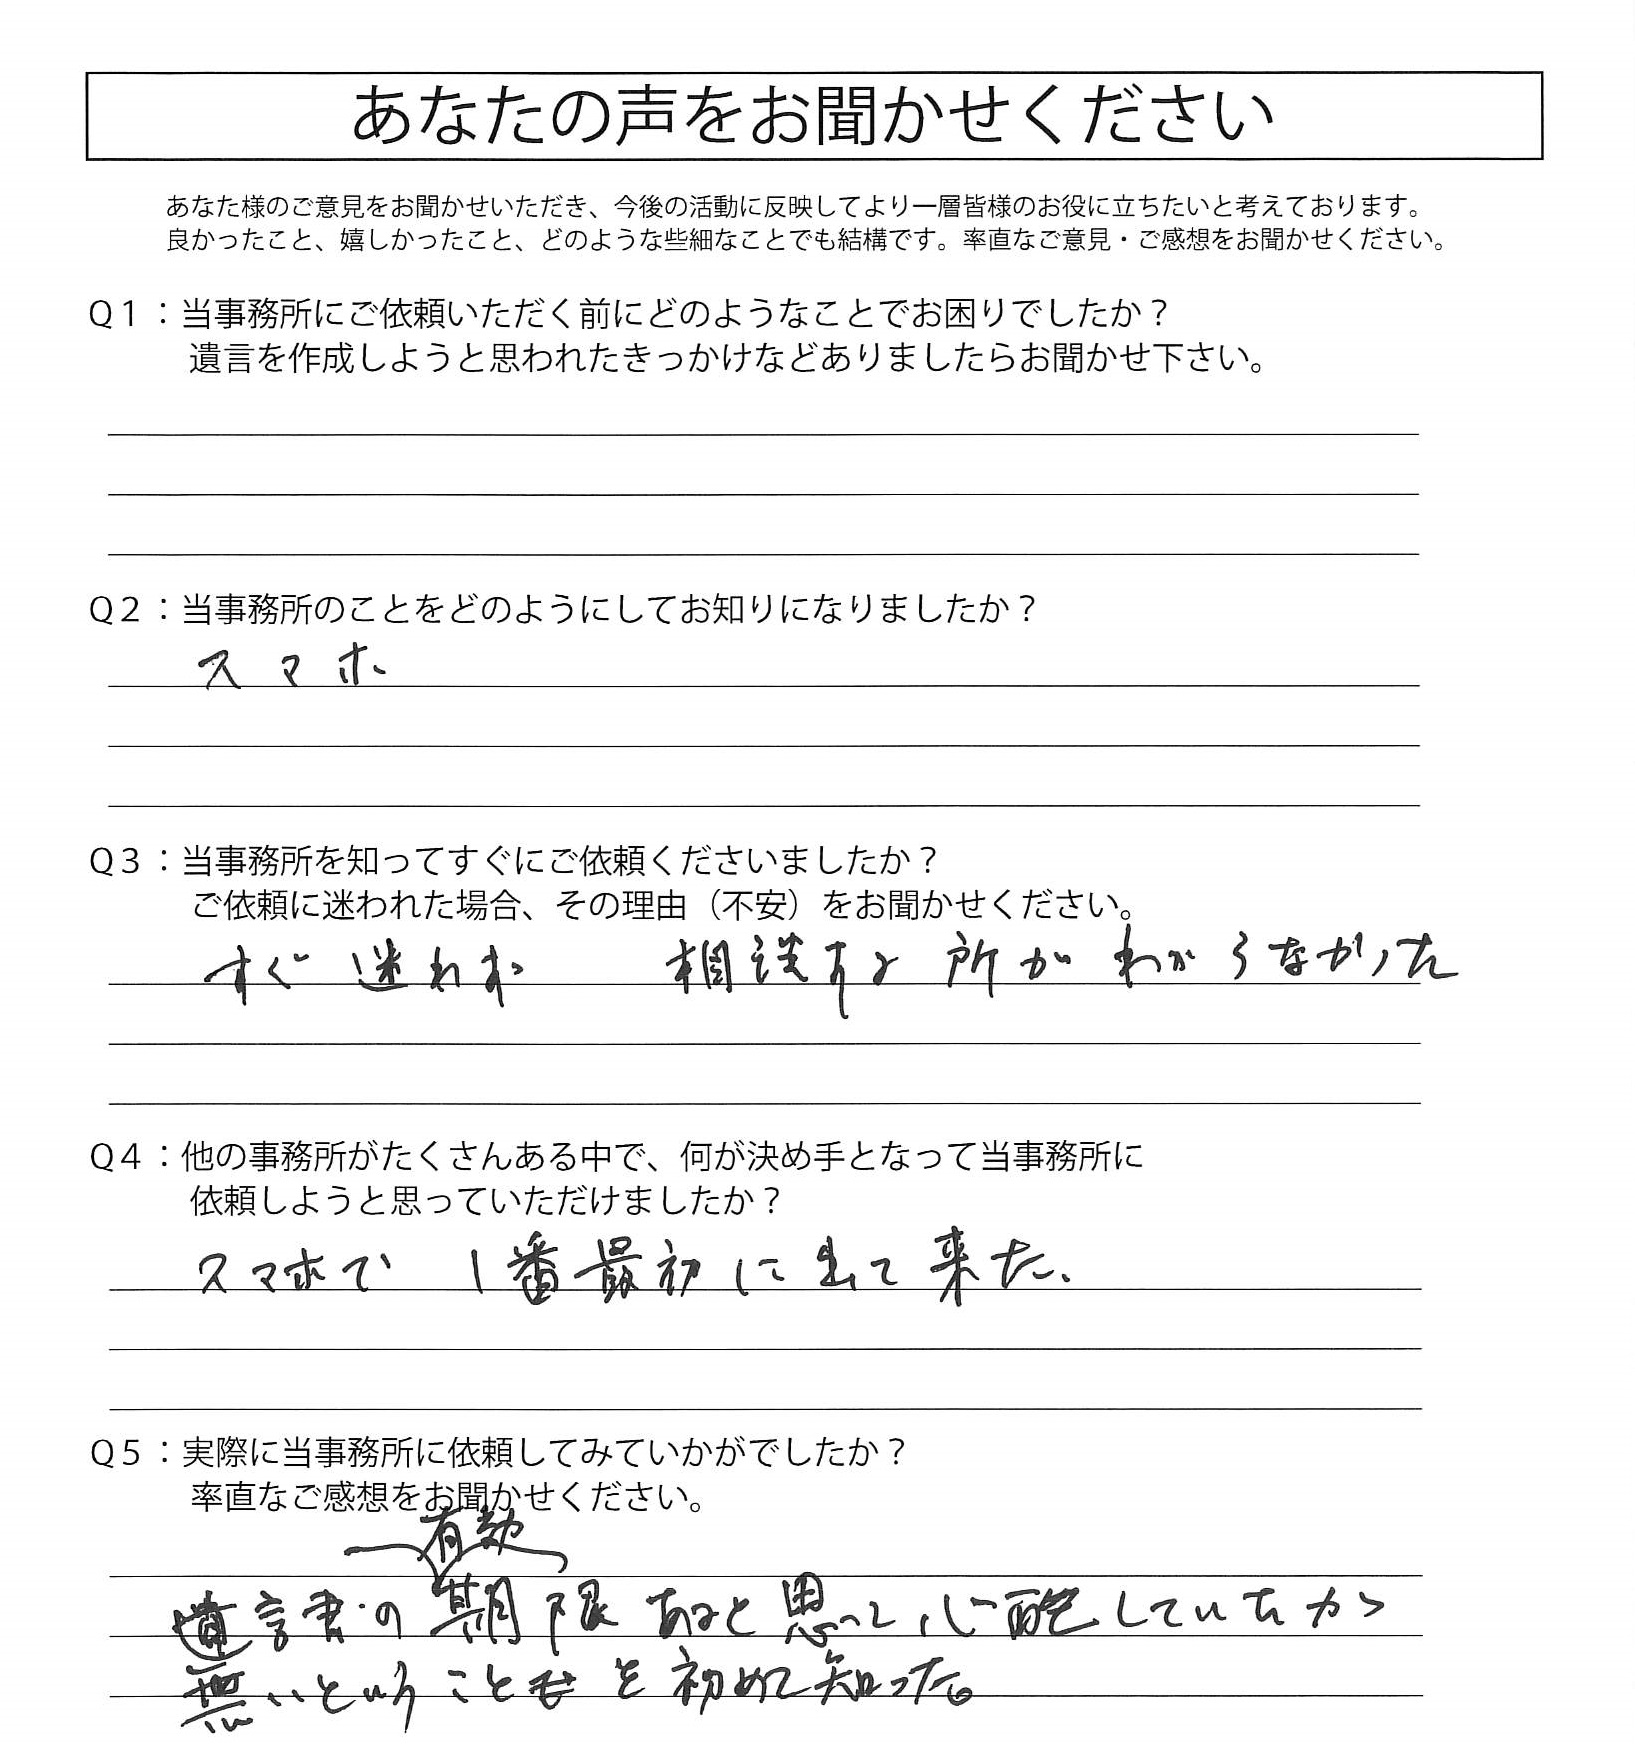 あなたの声をお聞かせください
あなた様のご意見をお聞かせいただき、今後の活動に反映してより一層皆様のお役に立ちたいと考えております。
良かったこと、嬉しかったこと、どのような些細なことでも結構です。率直なご意見・ご感想をお聞かせください。
Q1：当事務所にご依頼いただく前にどのようなことでお困りでしたか？
遺言を作成しようと思われたきっかけなどありましたらお聞かせ下さい。
Q2：当事務所のことをどのようにしてお知りになりましたか？
スマホ
Q3：当事務所を知ってすぐにご依頼くださいましたか？
ご依頼に迷われた場合、その理由（不安）をお聞かせください。
すぐ 迷れず 相談する所がわからなかった
Q4：他の事務所がたくさんある中で、何が決め手となって当事務所に
依頼しようと思っていただけましたか？
スマホで 1番最初に出て来た、
Q5：実際に当事務所に依頼してみていかがでしたか？
率直なご感想をお聞かせください。
有効
遺言書の期限あると思って心配していたが
無いということを初めて知った。